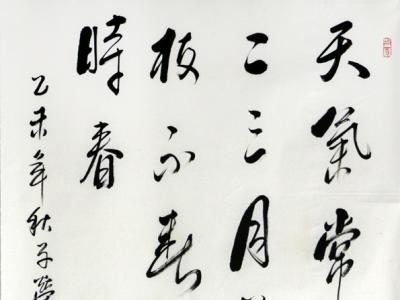 天氣常
二三月
枝不斷
時春
乙未年秋子